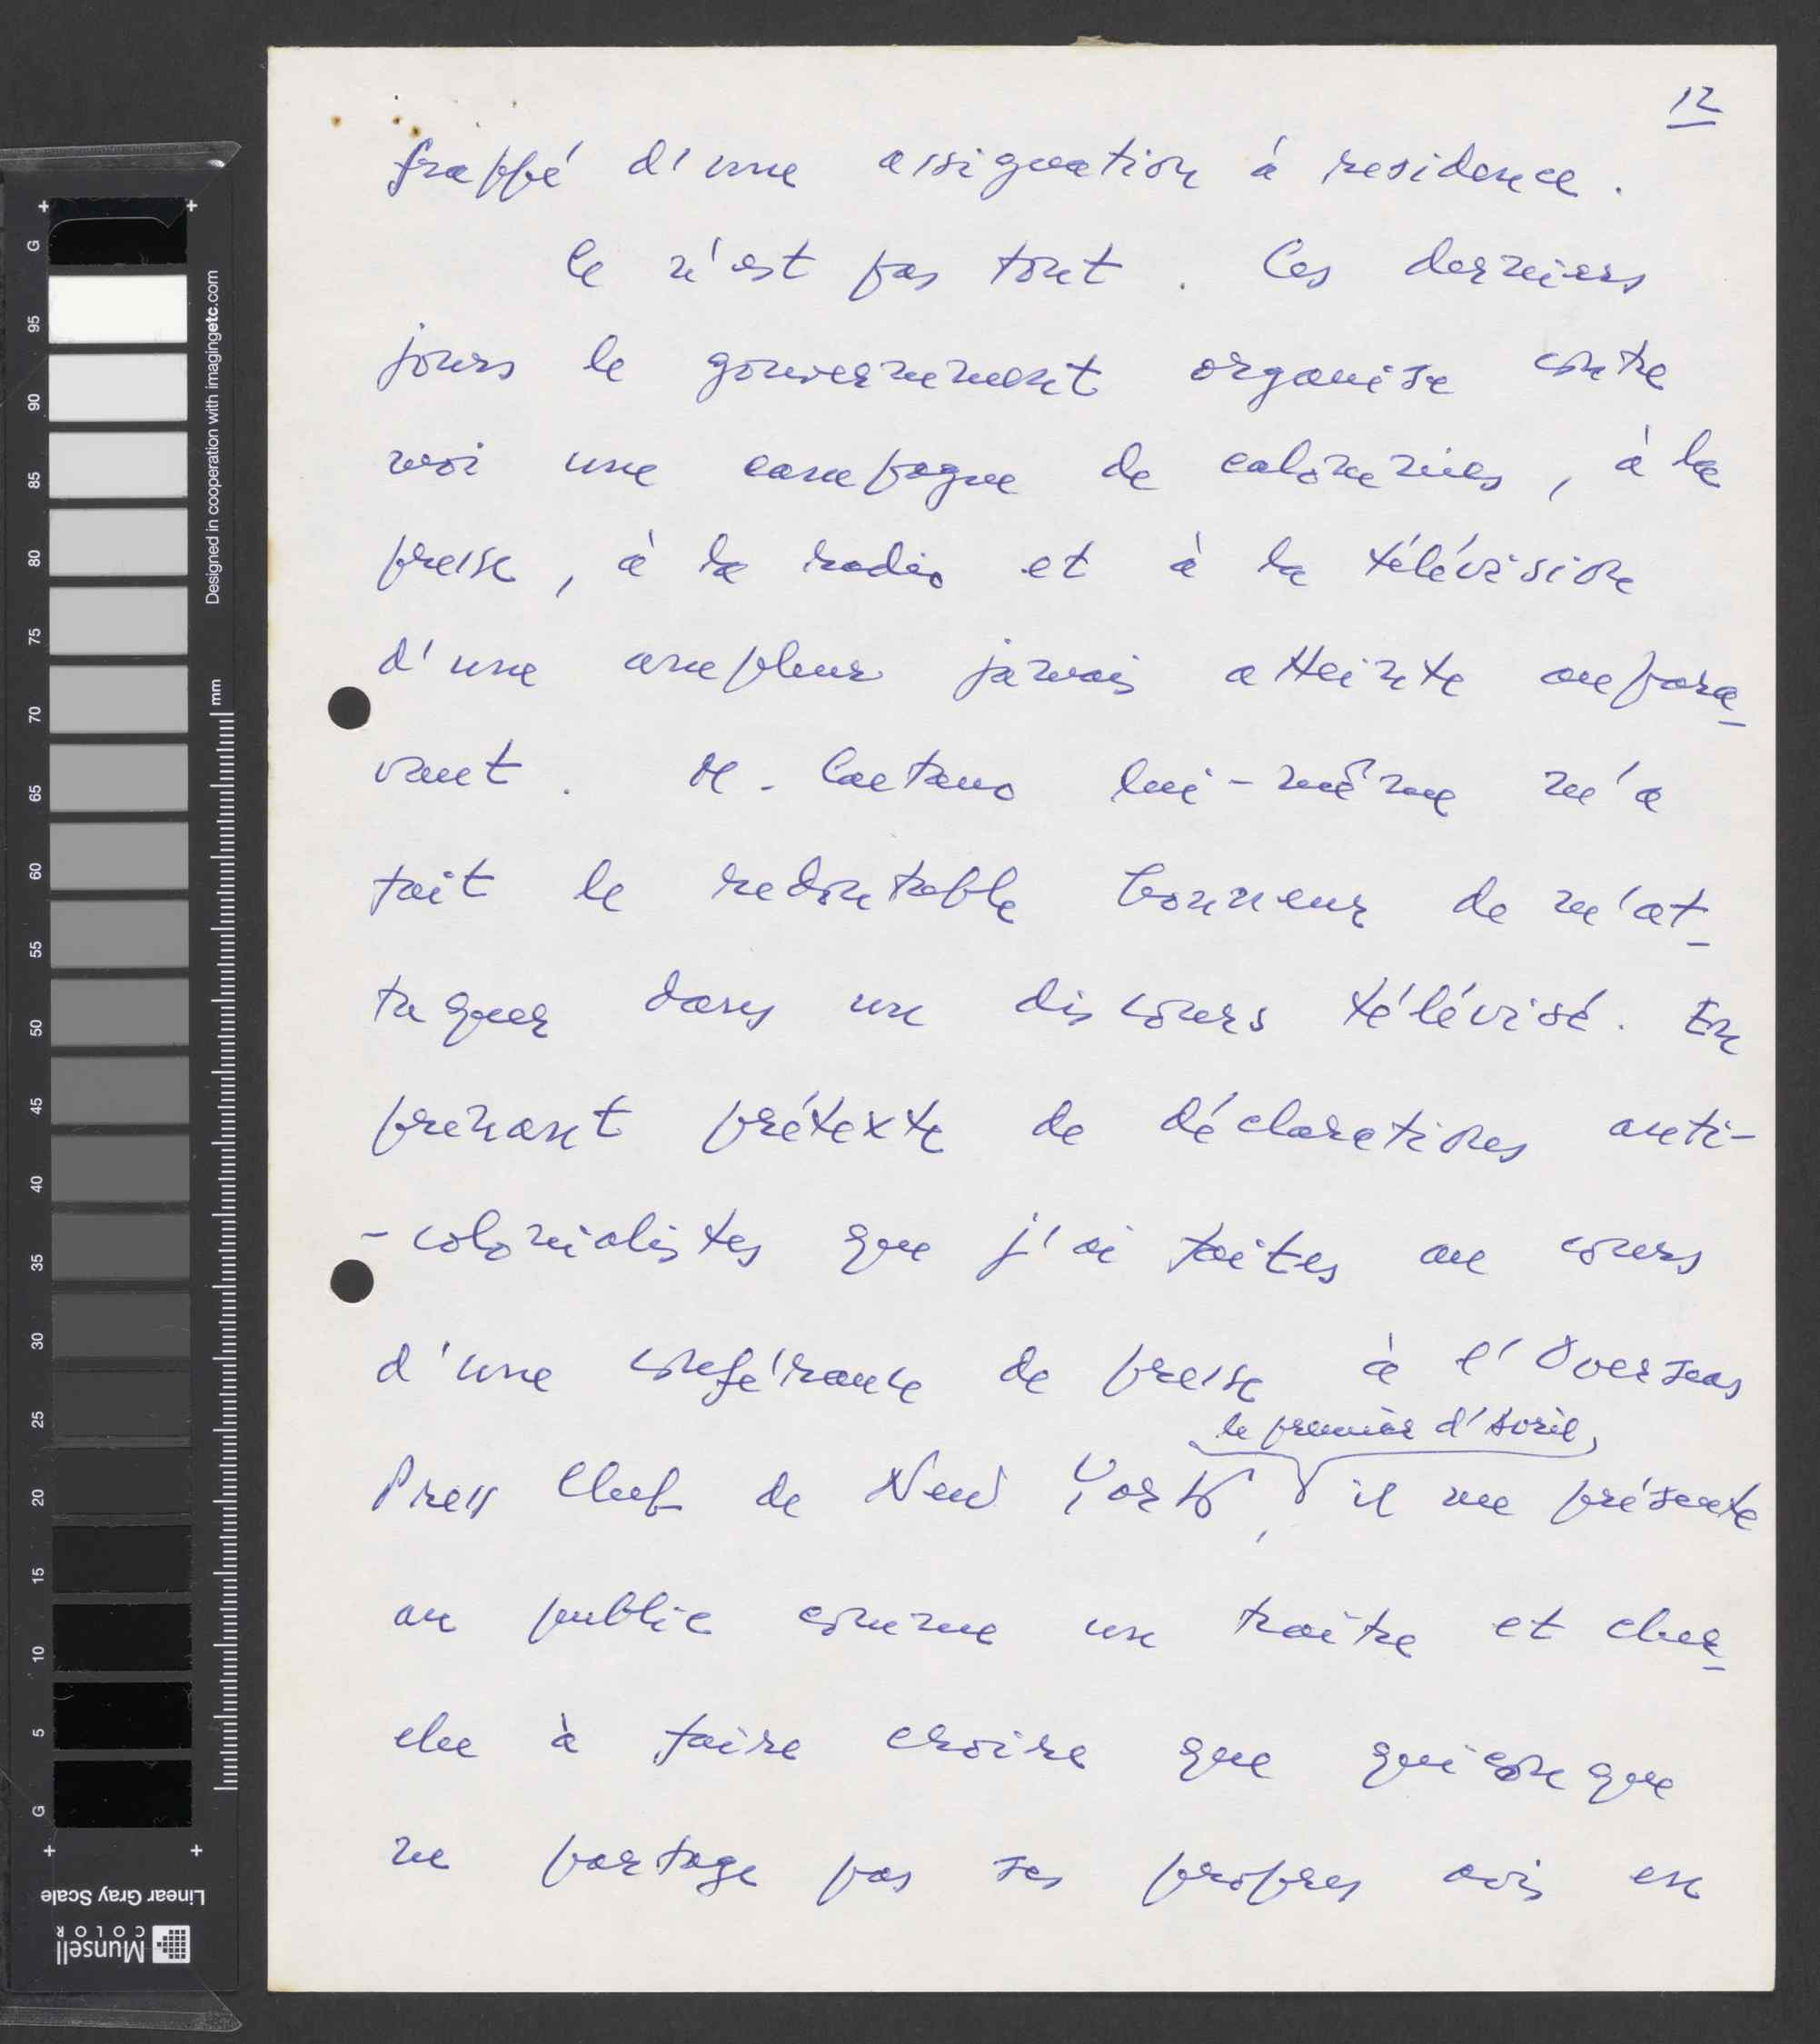 12
frappé d'une assignation à residence.
Ce n'est pas tout. Ces derniers
jours le gouvernement organise contre
moi une campagne de calomnies, à la
presse, à la radio et à la télévision
d'une ampleur jamais atteinte aupara-
vant. M. Caetano lui-même m'a
fait le redoutable honneur de m'at-
taquer dans un discours télévisé. En
prenant prétexte de déclarations anti-
-colonialistes que j'ai faites au cours
d'une conférance de presse à l'Overseas
le premier d'Avril,
Press Club de New York, il me présente
au public comme un traître et cher-
che à faire croire que quiconque
ne partage pas ses propres avis en
G
95
90
85
80
75
70
65
60
55
50
45
40
35
30
25
20
15
10
5
G
Designed in cooperation with imagingetc.com
mm
Linear Gray Scale
Munsell
COLOR